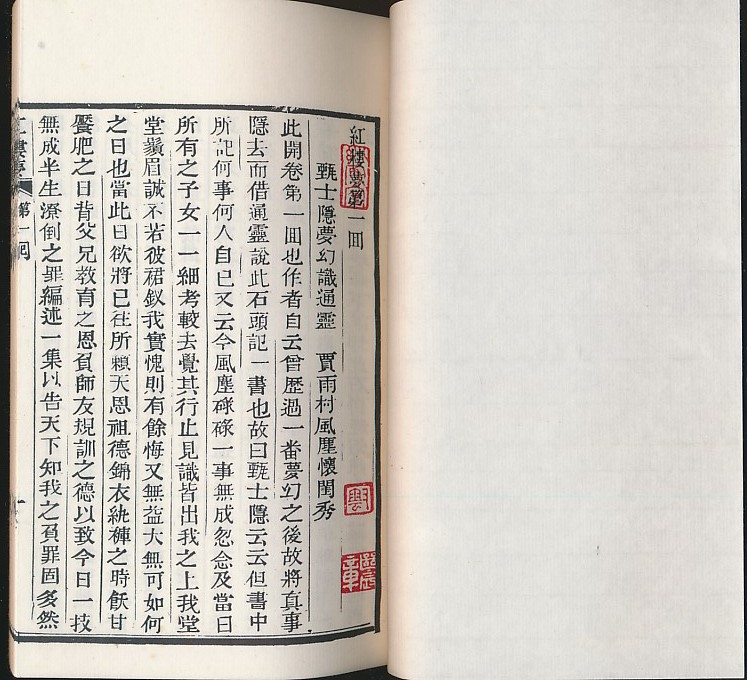 紅樓夢第一回
甄士隱夢幻識通靈　賈雨村風塵懷閨秀
此開卷第一回也作者自云曾歷過一番夢幻之後故將真事
隱去而借通靈說此石頭記一書也故曰甄士隱云云但書中
所記何事何人自己又云今風塵碌碌一事無成忽念及當日
所有之子女一一細考較去覺其行止見識皆出我之上我堂
堂鬚眉誠不若彼裙釵我實愧則有餘悔又無益大無可如何
之日也當此日欲將已往所賴天恩祖德錦衣紈褲之時飫甘
饜肥之日背父兄教育之恩負師友規訓之德以致今日一技
無成半生潦倒之罪編述一集以告天下知我之負罪固多然
紅樓夢　第一回　一